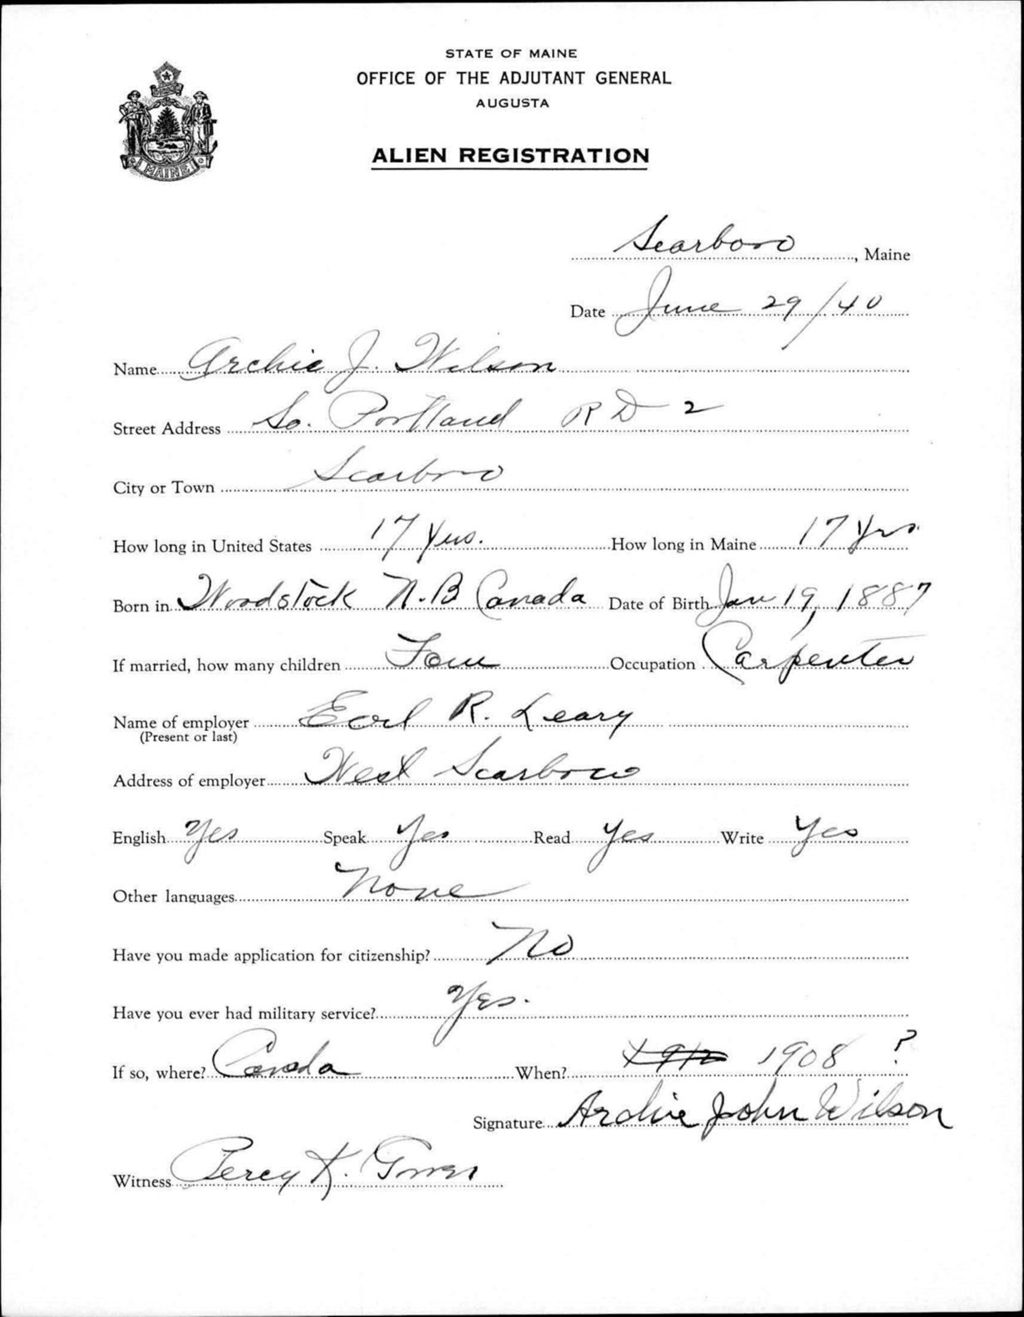 STATE OF MAINE
OFFICE OF THE ADJUTANT GENERAL
AUGUSTA
ALIEN REGISTRATION
MAINE
Scarboro, Maine
Date June 29/40
Name Archie J. Wilson
Street Address So. Portland R D 2
City or Town Scarboro
How long in United States 17 Yrs. How long in Maine 17 Yrs
Born in Woodstock N.B Canada Date of Birth Jan 19, 1887
If married, how many children Four Occupation Carpenter
Name of employer Earl R. Leary
(Present or last)
Address of employer West Scarboro
English Yes Speak Yes Read Yes Write Yes
Other languages None
Have you made application for citizenship? No
Have you ever had military service? Yes.
If so, where? Canada When? 1908 ?
Signature Archie John Wilson
Witness Percy K.